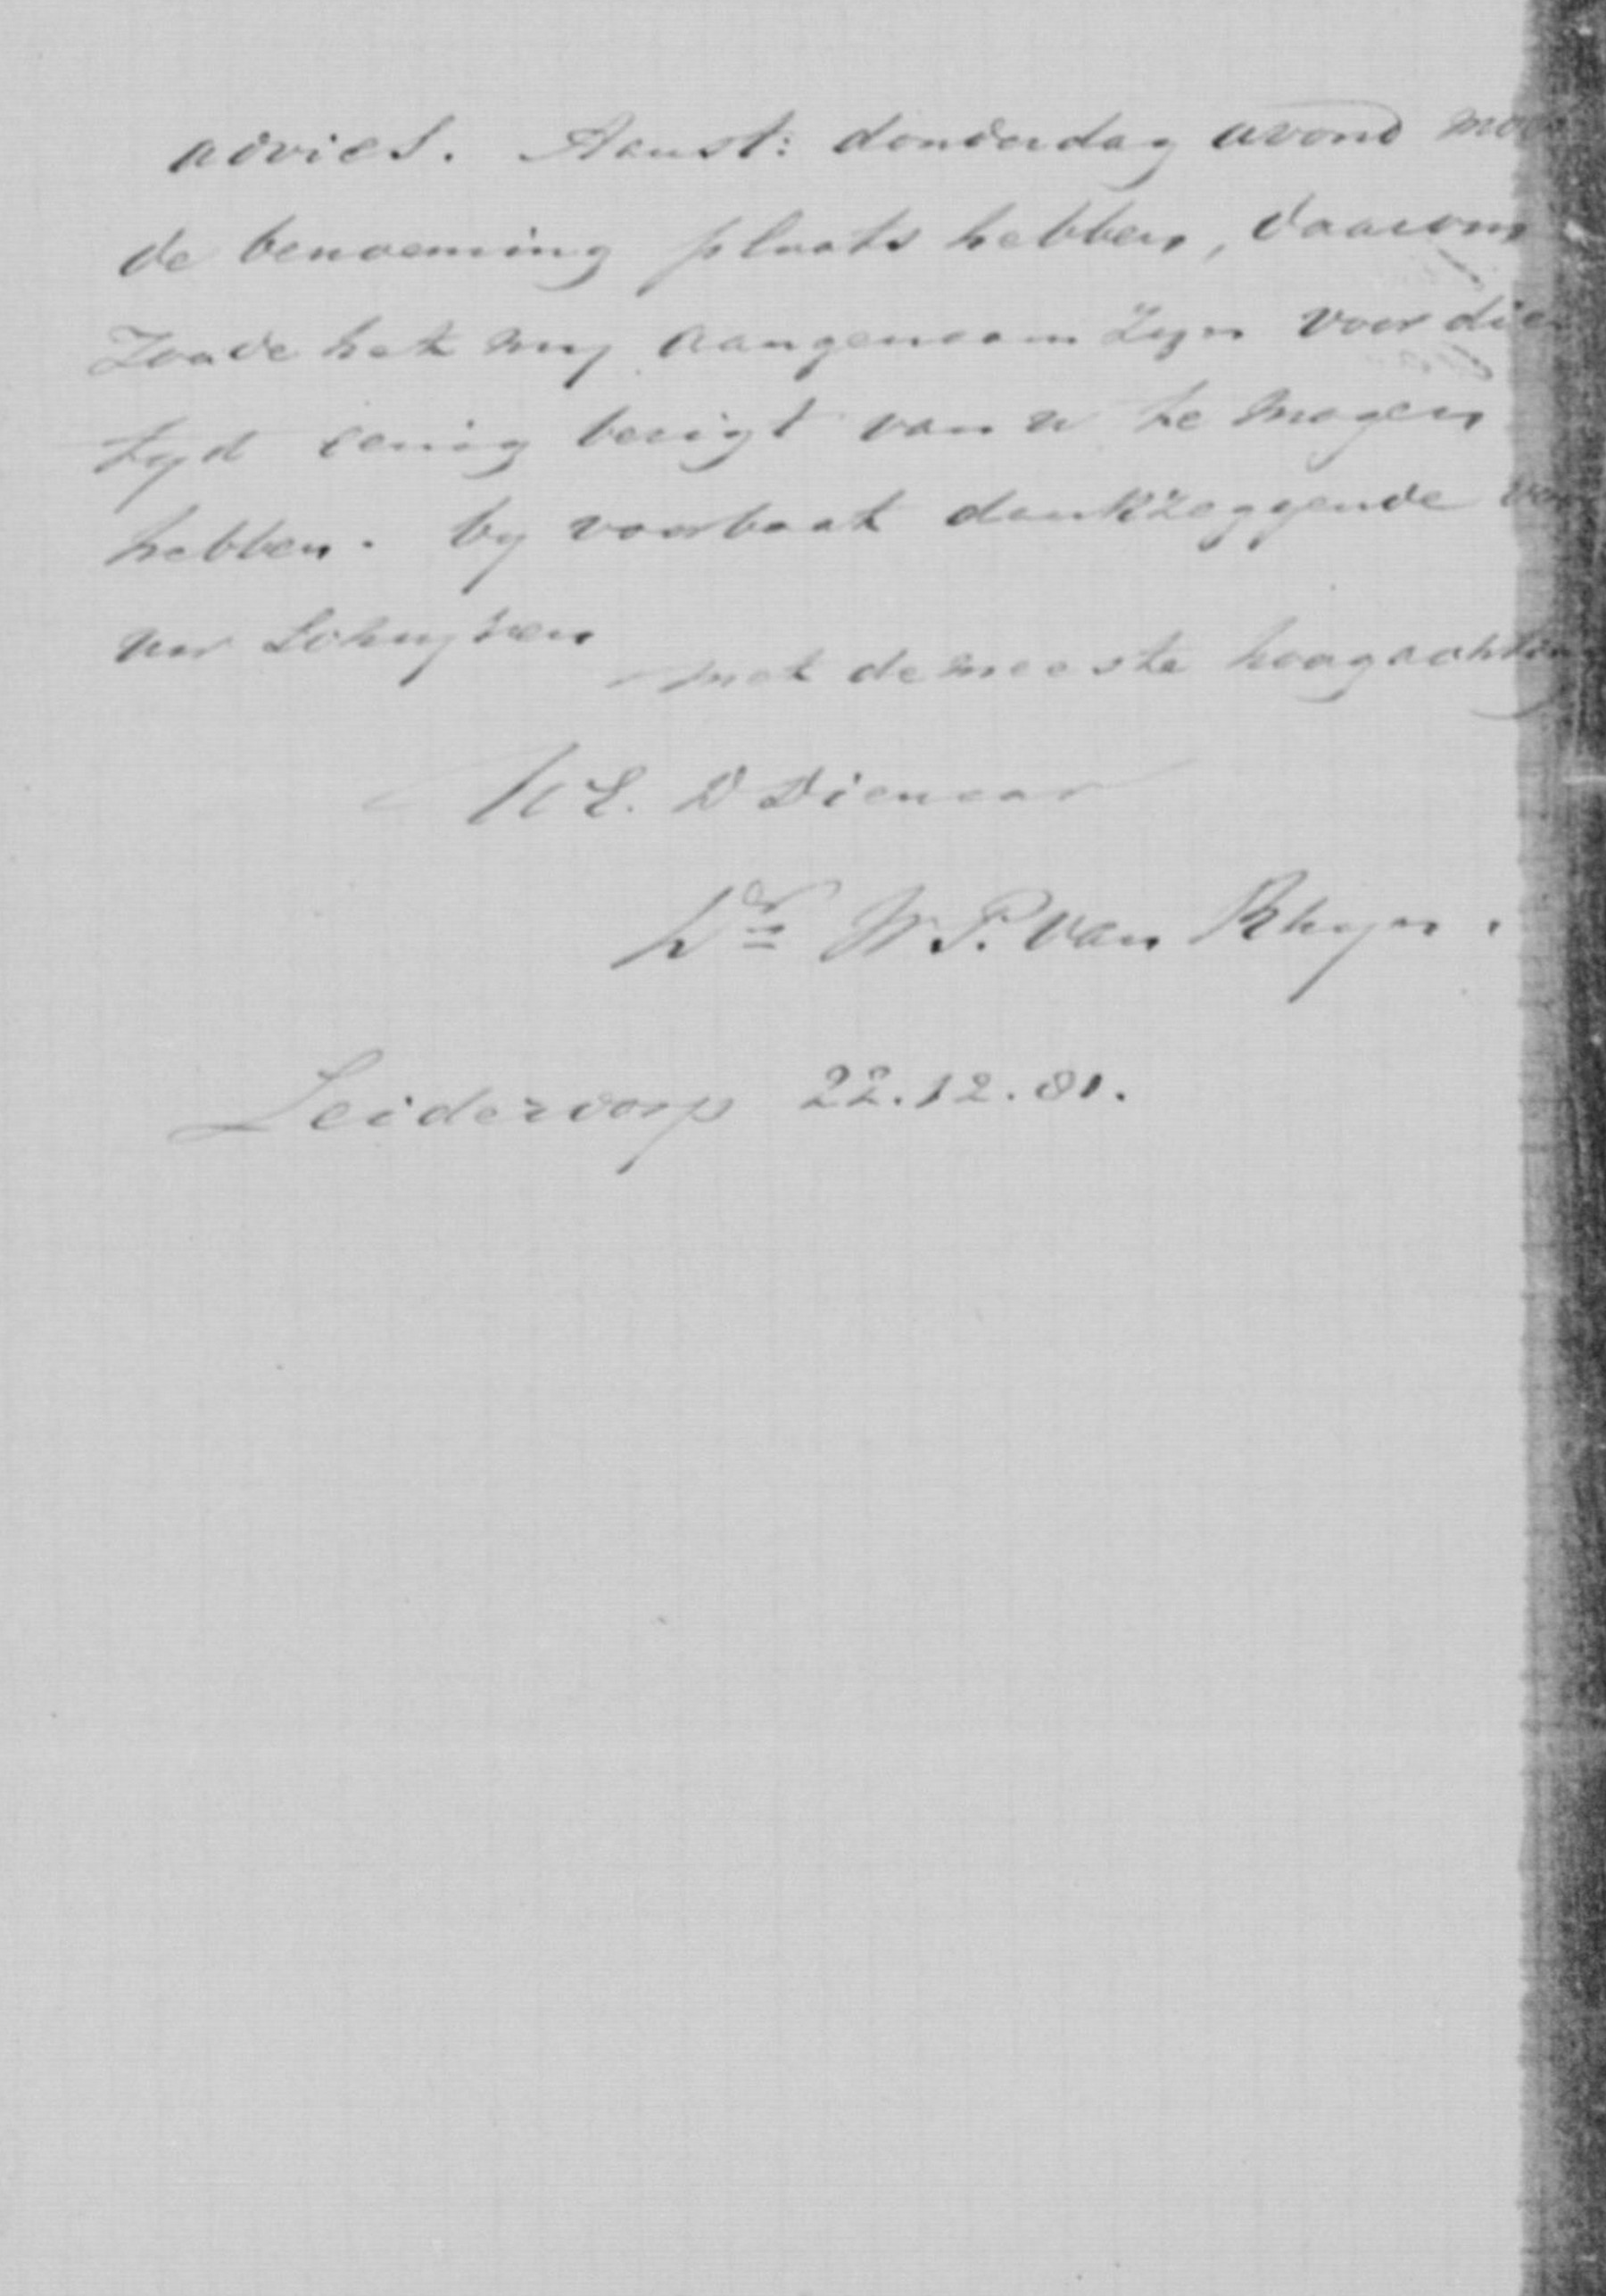 advies. Aanst: donderdag avond moe
de benoeming plaats hebben, daarom
Zoude het my aangenaam zyn voor dien
tyd eenig berigt van u te mogen
hebben. by voorbaat dankzeggende voor
uw Schryven
met de meeste hoogachting
UE. D Dienaar
Dr W. P. van Rhyn.
Leiderdorp 22.12.81.